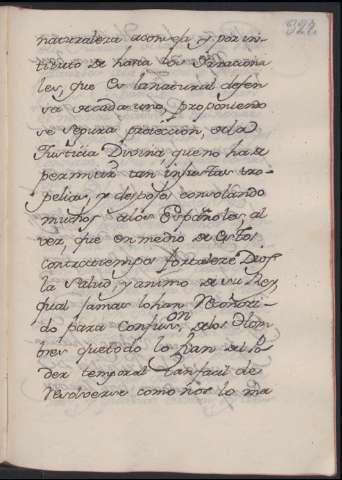 322
naturaleza aconseja, y por ins-
tituto de hasta los Irraciona-
les, que es la natural defen-
sa de cada uno, proponiendo
se segura protección, de la
Justicia Divina, que no ha de
permitir tan injustas tro-
pelias, y despojos consolando
muchos a los Españoles, al
ver, que en medio de estos
contratiempos fortalece Dios
la salud, y animo de su Rey
qual jamas lo han
do para confusion, de los Hom-
bres que todo lo han del Po-
der temporal tan facil de
revolverse como nos lo ma